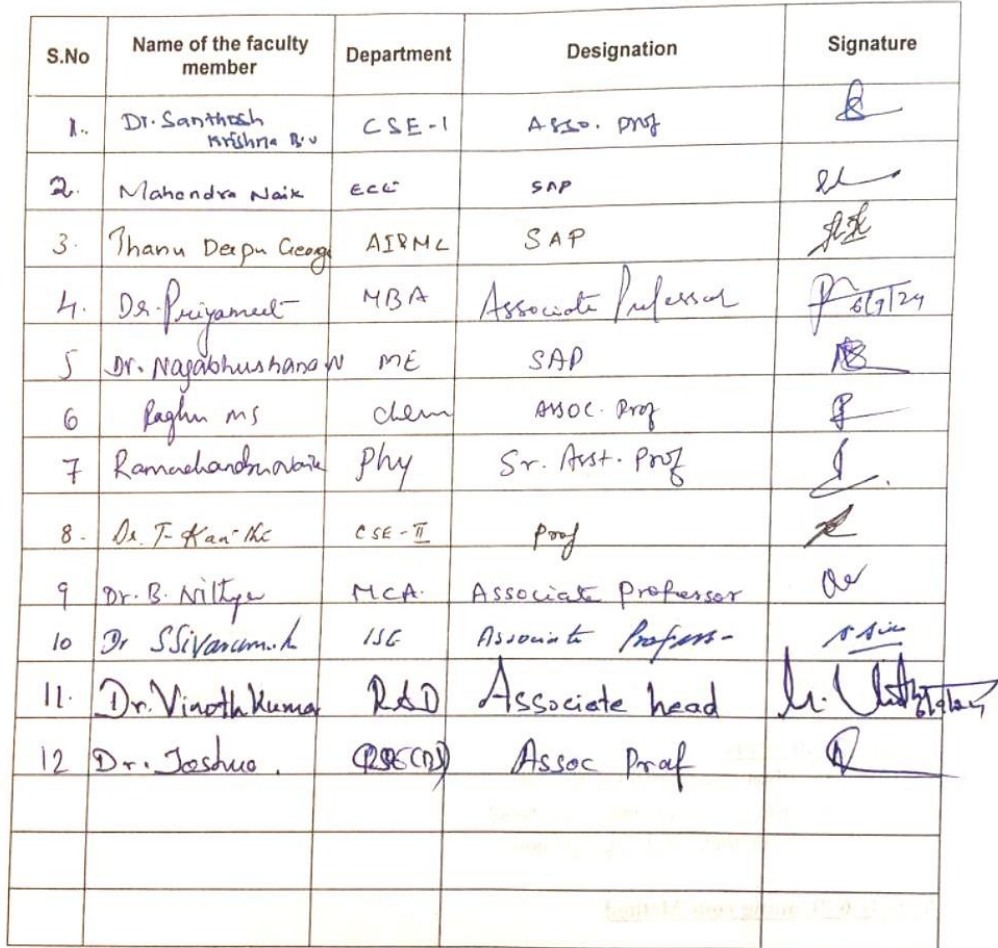 S.No Name of the faculty member Department Designation Signature
1. Dr. Santhosh Krishna B.V CSE-1 Asso. prof
2. Mahendra Naik ECE SAP
3. Thanu Deepu Georg AIRML SAP
4. Dr. Priyameet MBA Associate Professor 6/9/24
5 Dr. Nagabhushana N ME SAP
6 Raghu MS chem Assoc. Prof
7 Ramachandra Naik Phy Sr. Asst. Prof
8. Dr. T. CSE-II Prof
9 Dr. B. Nithya MCA. Associate Professor
10 Dr ISE Associate
11. Dr. Vinoth Kumar R&D Associate head
12 Dr. Joshua. Assoc Prof